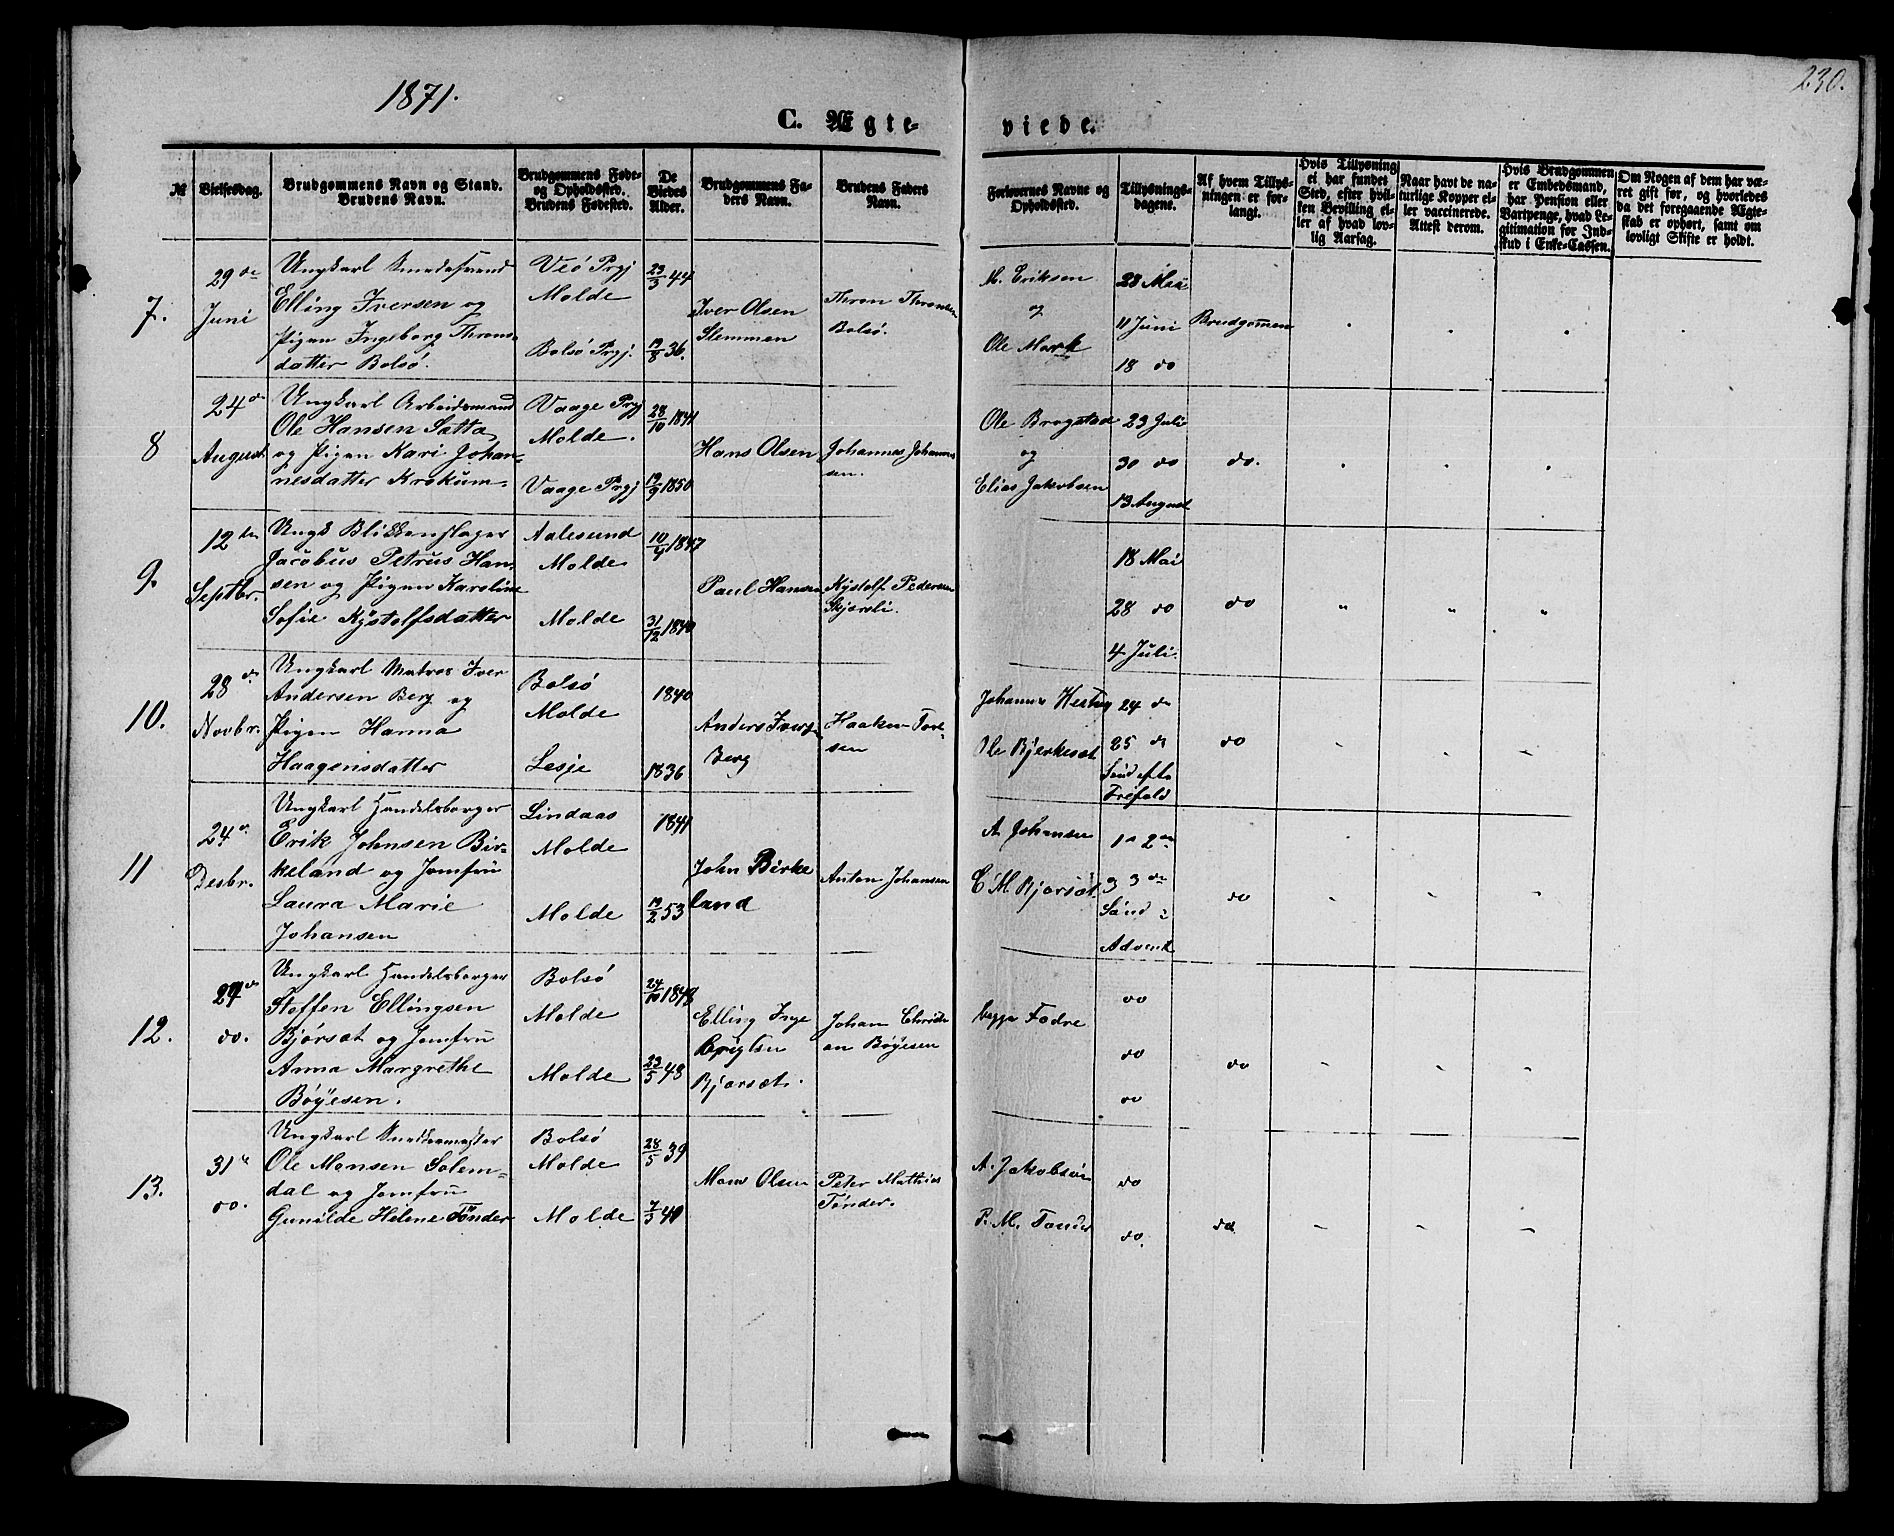 1871.
230.
C. Ægte-
viede.
№
Vielsesdag.
Brudgommens Navn og Stand.
Brudens Navn.
Brudgommens Føde-
og Opholdssted.
Brudens Fødested.
De
Viedes
Alder.
Brudgommens Fa-
ders Navn.
Brudens Faders
Navn.
Forlovernes Navne og
Opholdssted.
Tillysnings-
dagene.
Af hvem Tillys-
ningen er for-
langt.
Hvis Tillysning
ei har fundet
Sted, efter hvil-
ken Bevilling el-
ler af hvad lov-
lig Aarsag.
Naar havt de na-
turlige Kopper el-
ler vaccinerede.
Attest derom.
Hvis Brudgommen
er Embedsmand,
har Pension eller
Vartpenge, hvad Le-
gitimation for Ind-
skud i Enke-Cassen.
Om Nogen af dem har væ-
ret gift før, og hvorledes
da det foregaaende Ægte-
skab er ophørt, samt om
lovligt Skifte er holdt.
7.
29de
Juni
Ungkarl Smedesvend
Elling Iversen og
Pigen Ingeborg Throns-
datter Bolsø.
Veø Prgj
Molde
Bolsø Prgj.
23/3 44
19/8 36.
Iver Olsen
Slemmen
Thron Thronsen
Bolsø.
M. Eriksen
og
Ole Mork
28 Mai
11 Juni
18 do
Brudgommen
8
24de
August
Ungkarl Arbeidsmand
Ole Hansen Satta
og Pigen Kari Johan-
nesdatter Krokum
Vaage Prgj
Molde.
Vaage Prgj
28/10 1841
19/9 1850
Hans Olsen
Johannes Johannes
sen.
Ole Brogstad
og
Elias Jakobsen
23 Juli
30 do
13 August
do.
9.
12ten
Septbr.
Ungk Blikkenslager
Jacobus Petrus Han-
sen og Pigen Karoline
Sofie Kystolfsdatter
Aalesund
Molde
Molde
10/4 1847
31/12 1840
Paul Hansen
Kystolf Pedersen
Skjarsli.
18 Mai
28 do
4 Juli.
do
10.
28de
Novbr.
Ungkarl Matros Iver
Andersen Berg og
Pigen Hanna
Haagensdatter
Bolsø
Molde
Lesje
1840
1836
Anders Iversen
Berg
Haaken Tore-
sen
Johannes
Ole Bjerkesæt
24 do
25 do
Sønd efter
Trefold
do
11
24de
Desbr.
Ungkarl Handelsborger
Erik Johnsen Bir-
keland og Jomfru
Laura Marie
Johansen
Lindaas
Molde
Molde
1841
19/2 53
John Birke
land
Anton Johansen
A Johansen
C M. Bjorsæt
3 3de
Sønd i
Advent
do
12.
do.
Ungkarl Handelsborger
Steffen Ellingsen
Bjørsæt og Jomfru
Anna Margrethe
Bøyesen.
Bolsø
Molde
Molde
24/10 1848
23/5 48
Elling Inge
Bjorsæt.
Johan Christi
an Bøyesen
do
do
do
do
13.
31te
do.
Ungkarl Snedkermester
Ole Monsen Solem-
dal og Jomfru
Gunilde Helene Tønder
Bolsø
Molde
Molde
28/5 39
7/3 40
Mons Olsen
Peter Mathias
Tønder.
A. Jakobsen
P. M. Tønder
do
do.
do